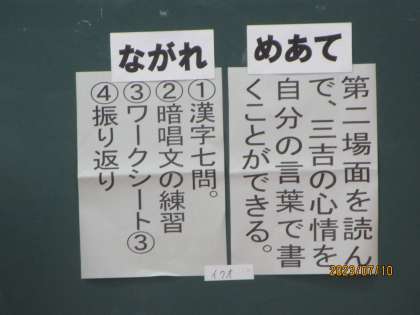 めあて
第二場面を読ん
で、三吉の心情を
自分の言葉で書
くことができる。
ながれ
①漢字七問。
②暗唱文の練習
③ワークシート③
④振り返り
2023/07/10